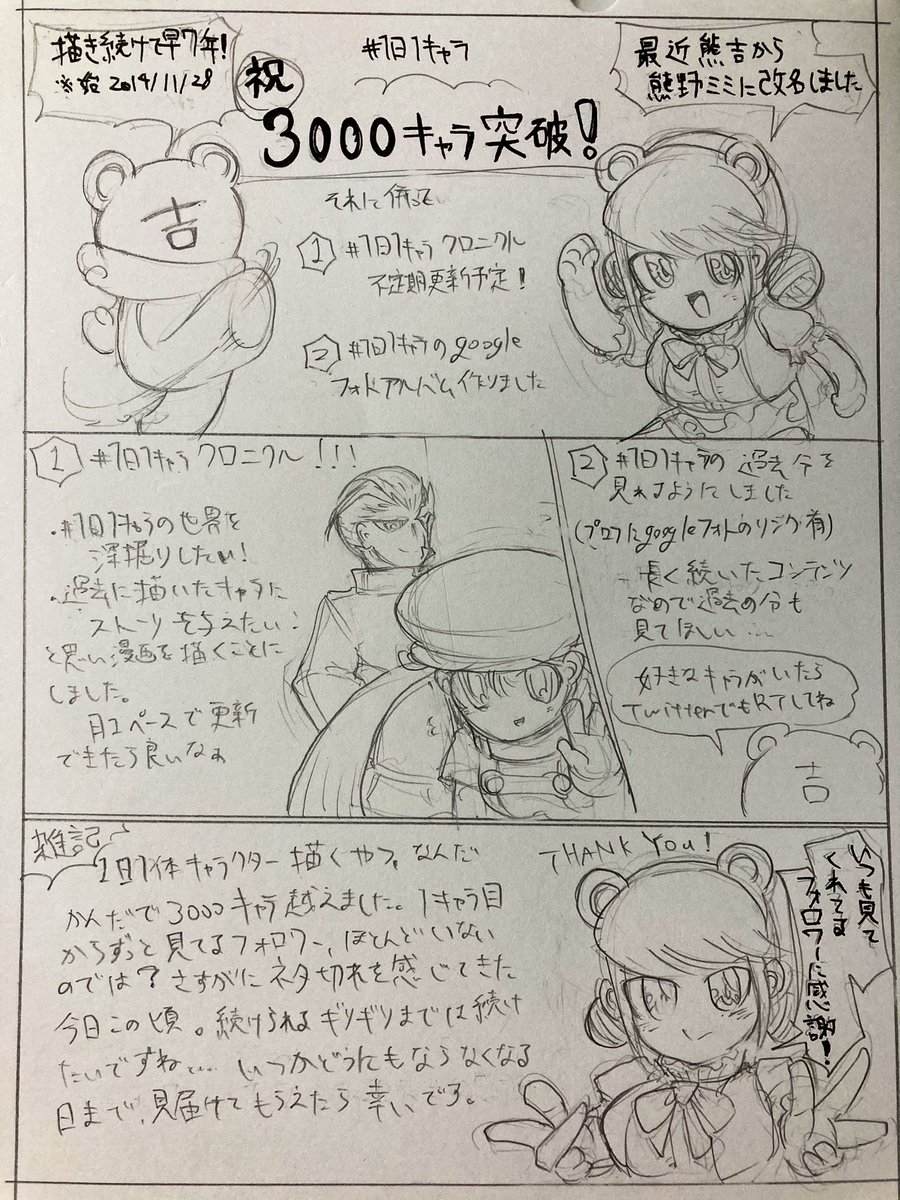 描き続けて早7年!
※始 2014/11/28
#1日1キャラ
祝
3000キャラ突破!
最近熊吉から
熊野ミミに改名しました
吉
それに伴って
1 #1日1キャラ クロニクル
不定期更新予定!
2 #1日1キャラのgoogle
フォトアルバム作りました
1 #1日1キャラ クロニクル!!!
・#1日1キャラの世界を
深掘りしたい!
・過去に描いたキャラに
ストーリーを与えたい!
と思い漫画を描くことに
しました。
月1ペースで更新
できたら良いなぁ
2 #1日1キャラの過去分を
見れるようにしました
(プロフにgoogleフォトのリンク有)
長く続いたコンテンツ
なので過去の分も
見てほしい…
好きなキャラがいたら
TwitterでもRTしてね
吉
雑記
1日1体キャラクター描くやつ、なんだ
かんだで3000キャラ越えました。1キャラ目
からずっと見てるフォロワー、ほとんどいない
のでは?さすがにネタ切れを感じてきた
今日この頃。続けられるギリギリまでは続け
たいですね… いつかどうにもならなくなる
日まで、見届けてもらえたら幸いです。
THANK YOU!
いつも見て
くれてる
フォロワーに感謝!